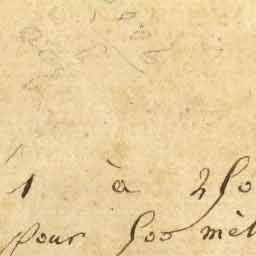 1 à 250
pour 500 mèt